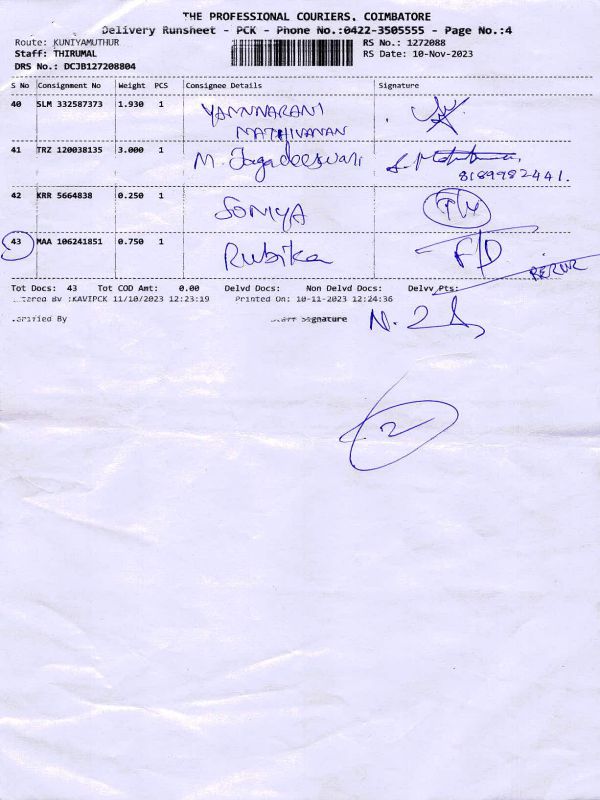 THE PROFESSIONAL COURIERS, COIMBATORE
Delivery Runsheet - PCK - Phone No.:0422-3505555 - Page No.:4
Route: KUNIYAMUTHUR RS No.: 1272088
Staff: THIRUMAL RS Date: 10-Nov-2023
DRS No.: DCJB127208804
S No Consignment No Weight PCS Consignee Details Signature
40 SLM 332587373 1.930 1
MATHIVANAN
41 TRZ 120038135 3.000 1 M. Jagadeeswari
8189982441.
42 KRR 5664838 0.250 1 SONIYA
43 MAA 106241851 0.750 1 Rubika F/D
Tot Docs: 43 Tot COD Amt: 0.00 Delvd Docs: Non Delvd Docs: Delvv Pts:
KAVIPCK 11/10/2023 12:23:19 Printed On: 10-11-2023 12:24:36
By Signature
2